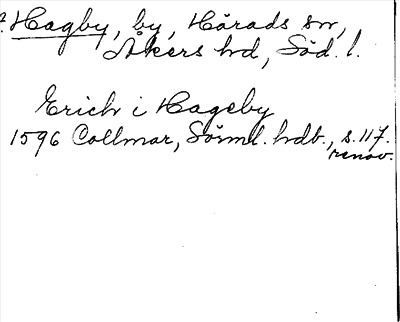 Hagby, by, Hårads sn,
Åkers hd, Söd. l.
Erich i Hageby
1596 Collmar, Sörml. hdb., s. 117.
renov.